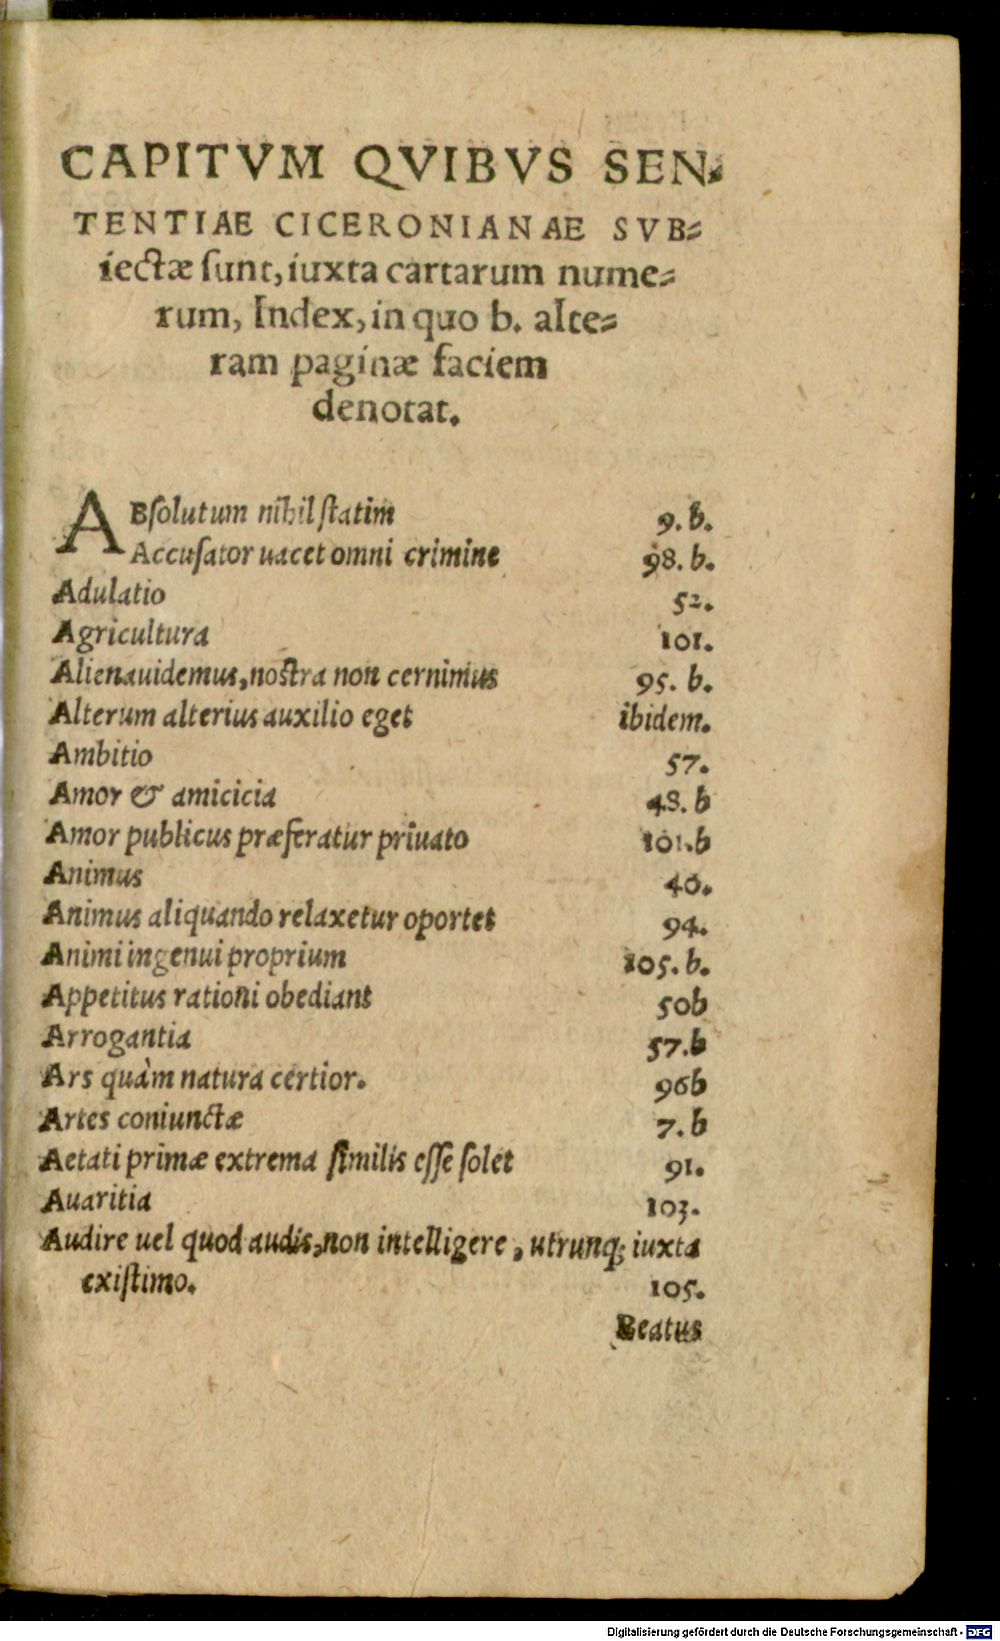 CAPITVM QVIBVS SEN⸗
TENTIAE CICERONIANAE SVB⸗
iectæ ſunt, iuxta cartarum nume⸗
rum, Index, in quo b. alte⸗
ram paginæ faciem
denotat.
ABſolutum nihil ſtatim 9. b.
Accuſator uacet omni crimine 98. b.
Adulatio 52.
Agricultura 101.
Aliena uidemus, noſtra non cernimus 95. b.
Alterum alterius auxilio eget ibidem.
Ambitio 57.
Amor & amicicia 48. b
Amor publicus præferatur priuato 101.b
Animus 40.
Animus aliquando relaxetur oportet 94.
Animi ingenui proprium 105. b.
Appetitus rationi obediant 50b
Arrogantia 57.b
Ars quàm natura certior. 96b
Artes coniunctæ 7. b
Aetati primæ extrema ſimilis eſſe ſolet 91.
Auaritia 103.
Audire uel quod audis, non intelligere, utrunq; iuxta
exiſtimo. 105.
Beatus
Digitalisierung gefördert durch die Deutsche Forschungsgemeinschaft - DFG